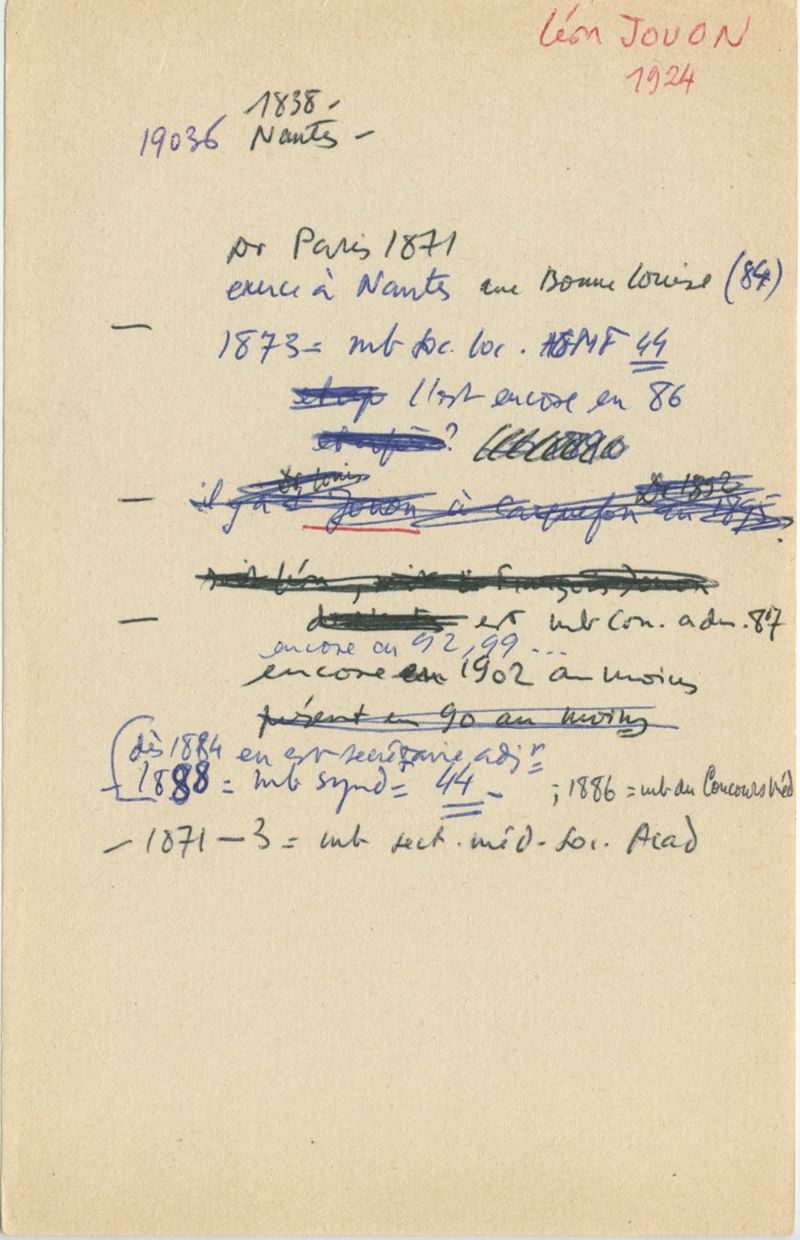 Léon JOUON
1924
1838-
19036 Nantes -
Dr Paris 1871
exerce à Nantes rue Bonne Louise (84)
- 1873 = mb soc. loc. AGMF 44
l'est encore en 86
?
- il y a Dr Louis Jouon à Carquefou en 1895 Dr 1892
soit Léon, soit François Jouon
- est mb con. adm. 87
encore en 92, 99 ...
encore en 1902 au moins
présent en 90 au moins
dès 1884 en est secrétaire adjt
- 1888 = mb synd = 44 - ; 1886 = mb du Concours Méd
- 1871-3 = mb sect. méd. Soc. Acad